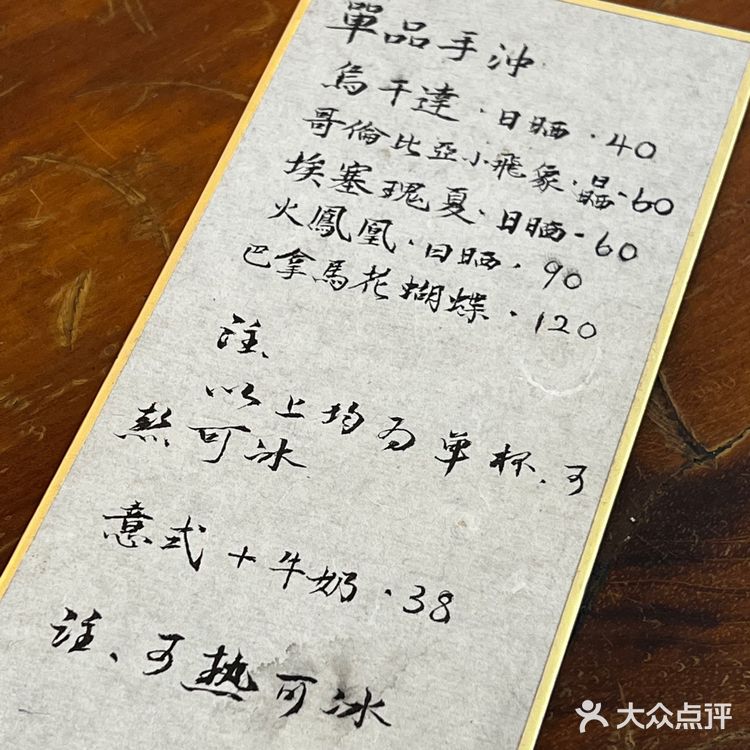 單品手沖
烏干達·日晒·40
哥倫比亞小飛象·日晒·60
埃塞瑰夏·日晒·60
火鳳凰·日晒·90
巴拿馬花蝴蝶·120
註、
以上均为單杯、可
熱可冰
意式+牛奶·38
註、可热可冰
大众点评